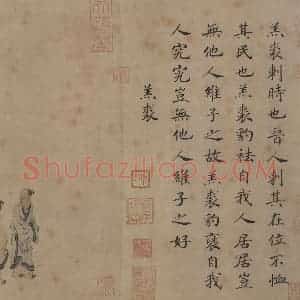 羔裘刺時也晉人刺其在位不恤
其民也羔裘豹袪自我人居居豈
無他人維子之故羔裘豹褎自我
人究究豈無他人維子之好
羔裘
Shufaziliao.com